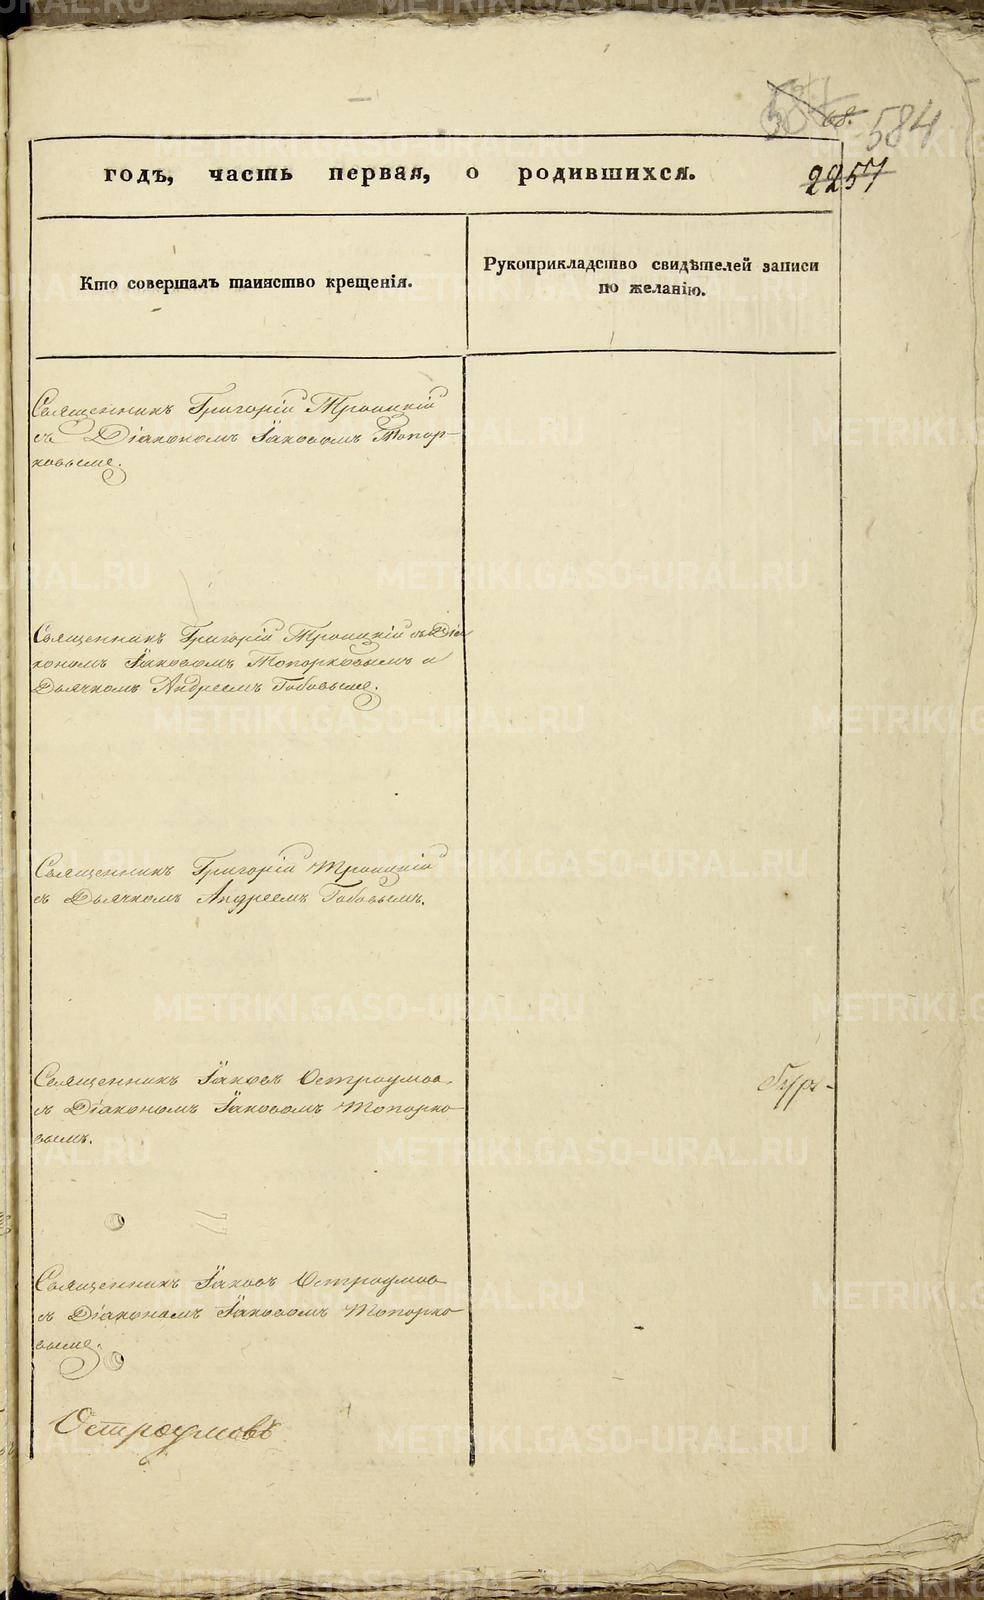 68. 584
2257
годъ, часть первая, о родившихся.
Кто совершалъ таинство крещенія.
Рукоприкладство свидѣтелей записи
по желанію.
Священникъ Григорій Троицкій
съ Діакономъ Іаковомъ Топор-
ковымъ.
Священникъ Григорій Троицкій съ Діа
кономъ Іаковомъ Топорковымъ и
Дьячкомъ Андреемъ Бабовымъ.
Священникъ Григорій Троицкій
съ Дьячкомъ Андреемъ Бабовымъ.
Священникъ Іаковъ Остроумов
съ Діакономъ Іаковомъ Топорко
вымъ.
Священникъ Іаковъ Остроумов
съ Діакономъ Іаковомъ Топорко
вымъ.
Остроумовъ
METRIKI.GASO-URAL.RU